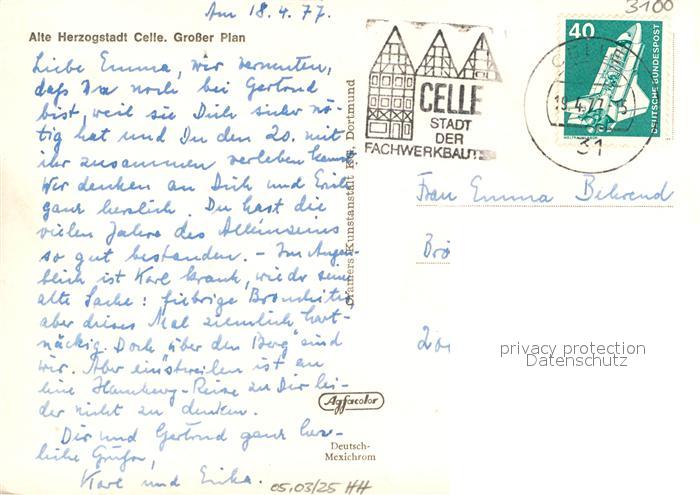 Am 18.4.77.
Alte Herzogstadt Celle. Großer Plan
Liebe Emma, wir vermuten,
daß Du noch bei Gertrud
bist, weil sie Dich sicher nö-
tig hat und Du den 20. mit
ihr zusammen verleben kannst.
Wir denken an Dich und Erich
ganz herzlich. Du hast die
vielen Jahre des Alleinseins
so gut bestanden. – Im Augen-
blick ist Karl krank, wieder seine
alte Sache: fiebrige Bronchitis
aber dieses Mal ziemlich hart-
näckig. Doch "über den Berg" sind
wir. Aber einstweilen ist an
eine Hamburg-Reise zu Dir lei-
der nicht zu denken.
Dir und Gertrud ganz herz-
liche Grüße,
Karl und Erika.
Cramers Kunstanstalt KG, Dortmund
Agfacolor
Deutsch-
Mexichrom
05.03/25 HH
CELLE
STADT
DER
FACHWERKBAUTEN
3100
40
DEUTSCHE BUNDESPOST
CELLE
19.4.77
31
Frau Emma Behrend
Brö
privacy protection
Datenschutz